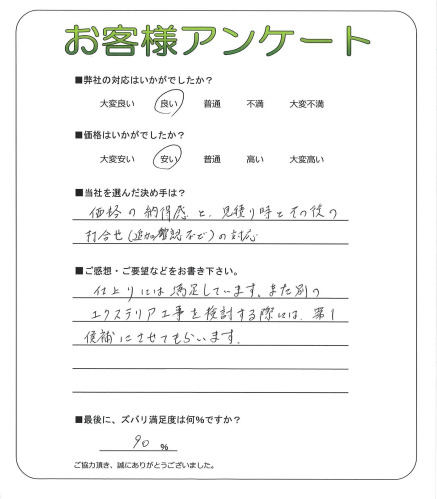 お客様アンケート
■弊社の対応はいかがでしたか?
大変良い 良い 普通 不満 大変不満
■価格はいかがでしたか?
大変安い 安い 普通 高い 大変高い
■当社を選んだ決め手は?
価格の納得感と、見積り時とその後の
打合せ(追加確認など)の対応
■ご感想・ご要望などをお書き下さい。
仕上りには満足しています。また別の
エクステリア工事を検討する際には、第1
候補にさせてもらいます。
■最後に、ズバリ満足度は何%ですか?
90 %
ご協力頂き、誠にありがとうございました。